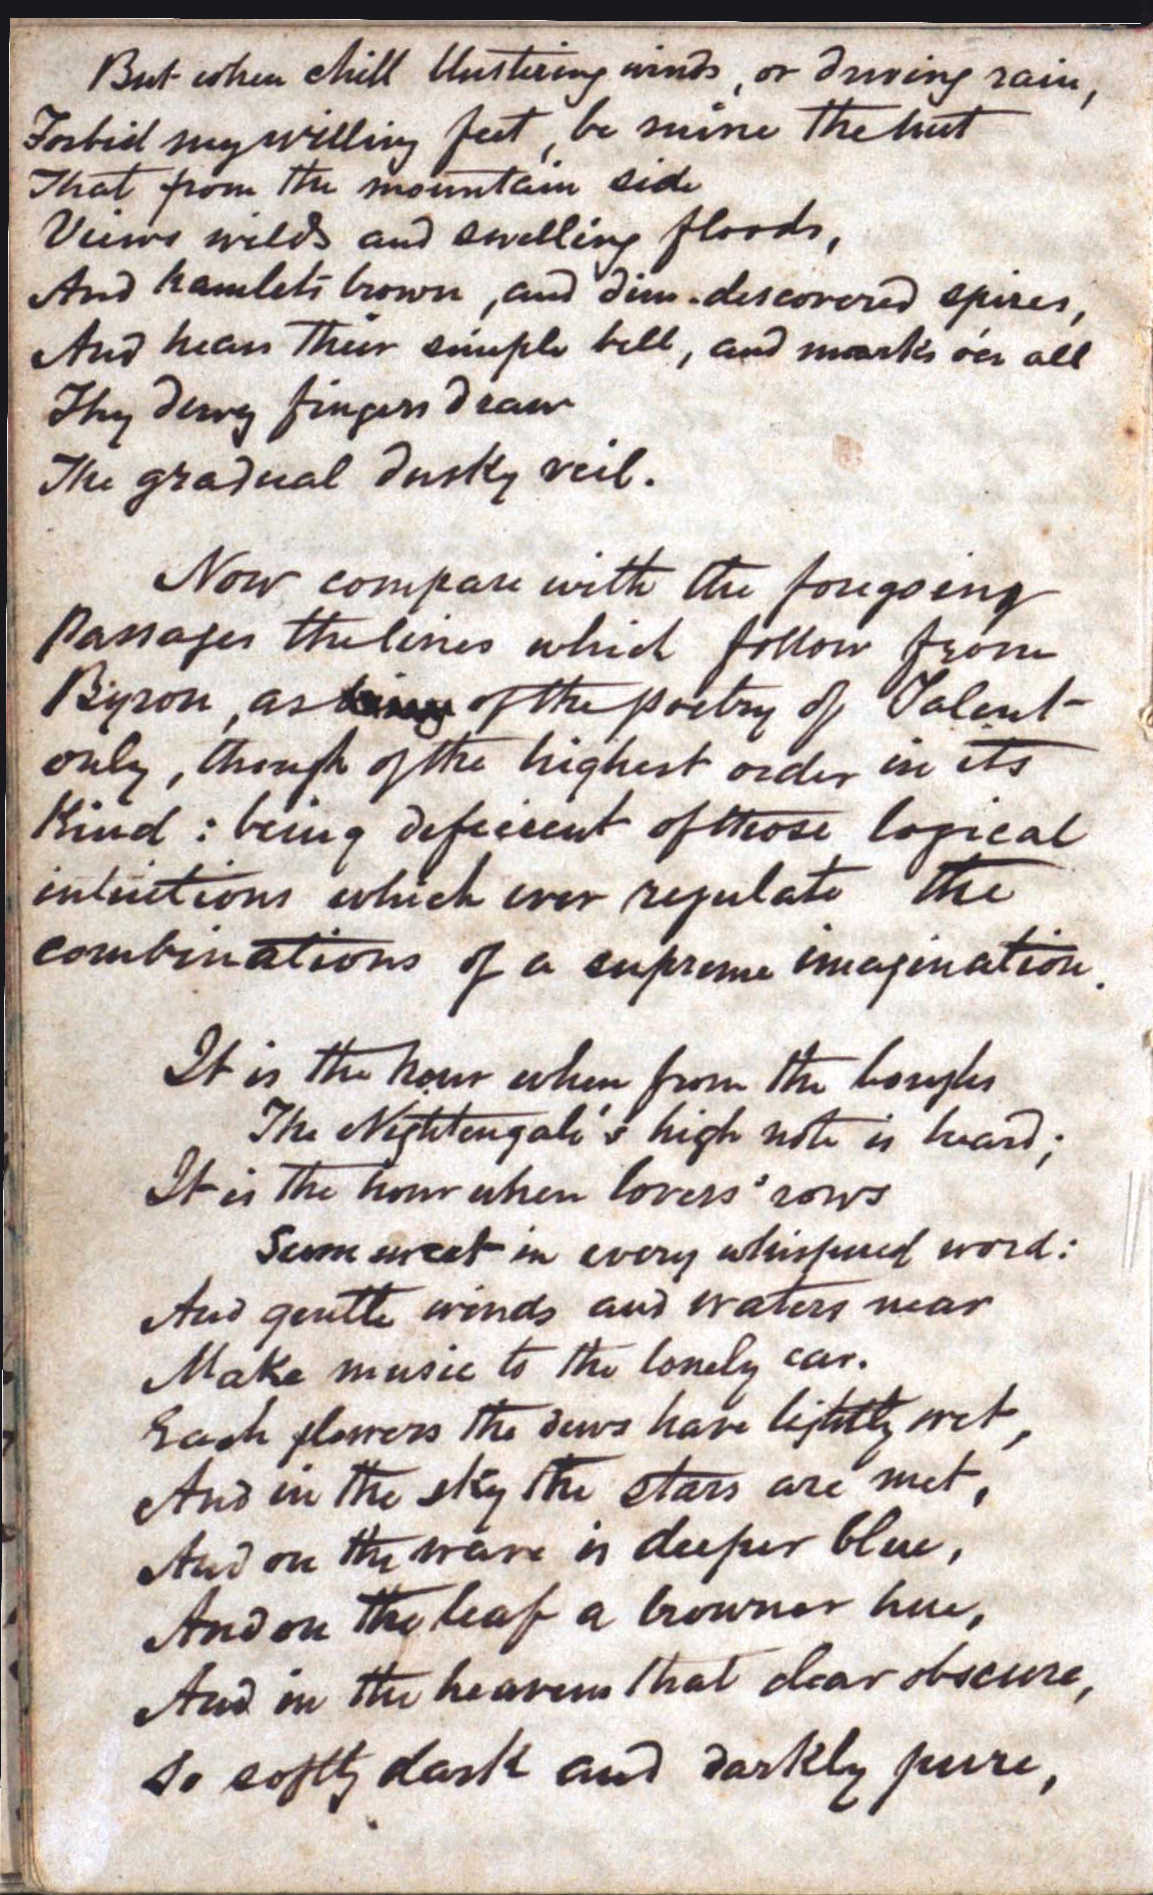 But when chill blustering winds, or driving rain,
Forbid my willing feet, be mine the hut
That from the mountain side
Views wilds and swelling floods,
And hamlets brown, and dim-descovered spires,
And hears their simple bell, and marks o'er all
Thy dewy fingers draw
The gradual dusky veil.
Now compare with the foregoing
Passages the lines which follow from
Byron, as being of the poetry of Talent
only, though of the highest order in its
Kind: being deficient of those logical
intuitions which ever regulate the
combinations of a supreme imagination.
It is the hour when from the boughs
The Nightengale's high note is heard;
It is the hour when lovers' vows
Seem sweet in every whispered word:
And gentle winds and waters near
Make music to the lonely ear.
Each flowers the dews have lightly wet,
And in the sky the stars are met,
And on the wave is deeper blue,
And on the leaf a browner hue,
And in the heavens that clear obscure,
So softly dark and darkly pure,